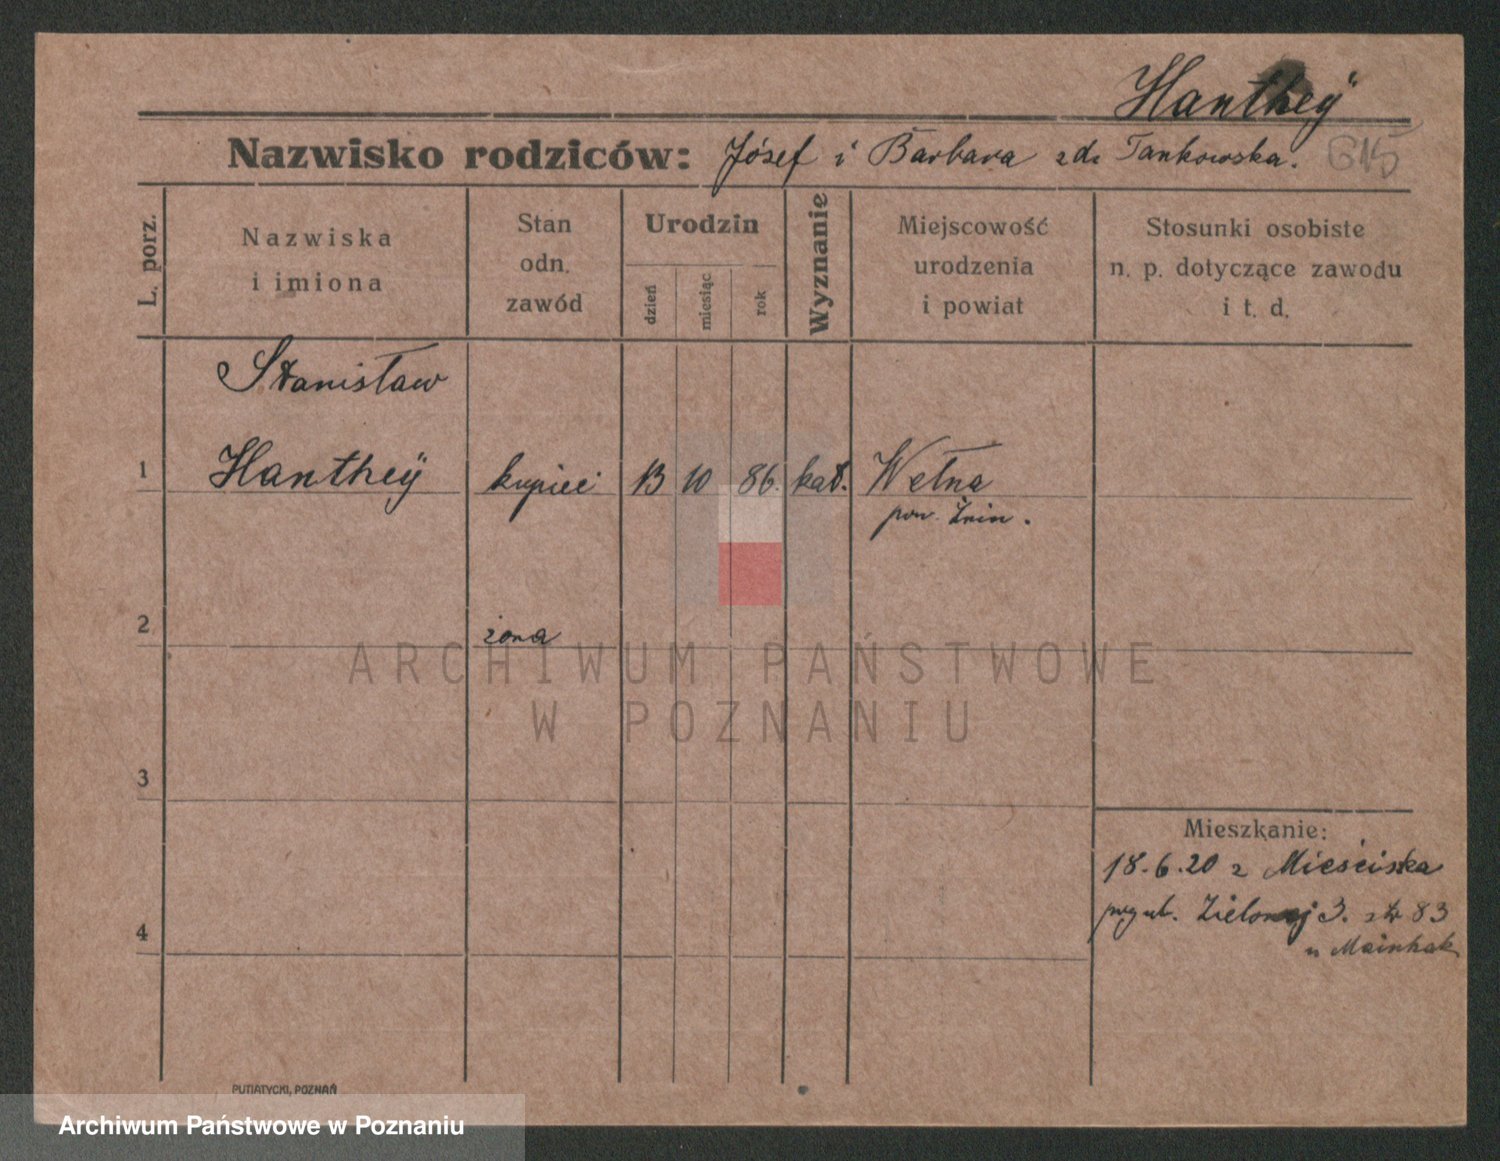 Hantheÿ
Nazwisko rodziców: Józef i Barbara zd. Tankowska. G15
L. porz.
Nazwiska
i imiona
Stan
odn.
zawód
Urodzin
dzień
miesiąc
rok
Wyznanie
Miejscowość
urodzenia
i powiat
Stosunki osobiste
n. p. dotyczące zawodu
i t. d.
Stanisław
1 Hantheÿ kupiec 13 10 86. kat. Wełna
pow. Żnin.
2 żona
ARCHIWUM PAŃSTWOWE
W POZNANIU
3
Mieszkanie:
18.6.20 z Mieściska
4 Zielonej 3. 83
u Mainhak
PUTIATYCKI, POZNAŃ
Archiwum Państwowe w Poznaniu